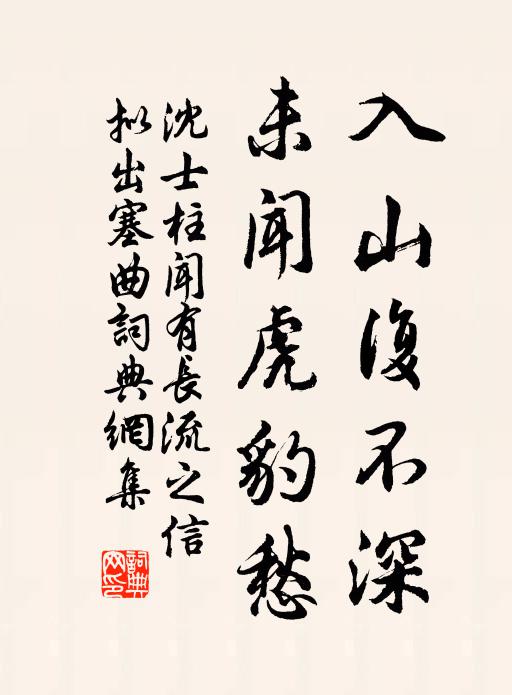 入山復不深
未聞虎豹愁
沈士柱聞有長流之信
拟出塞曲詞典網集
詞典网印